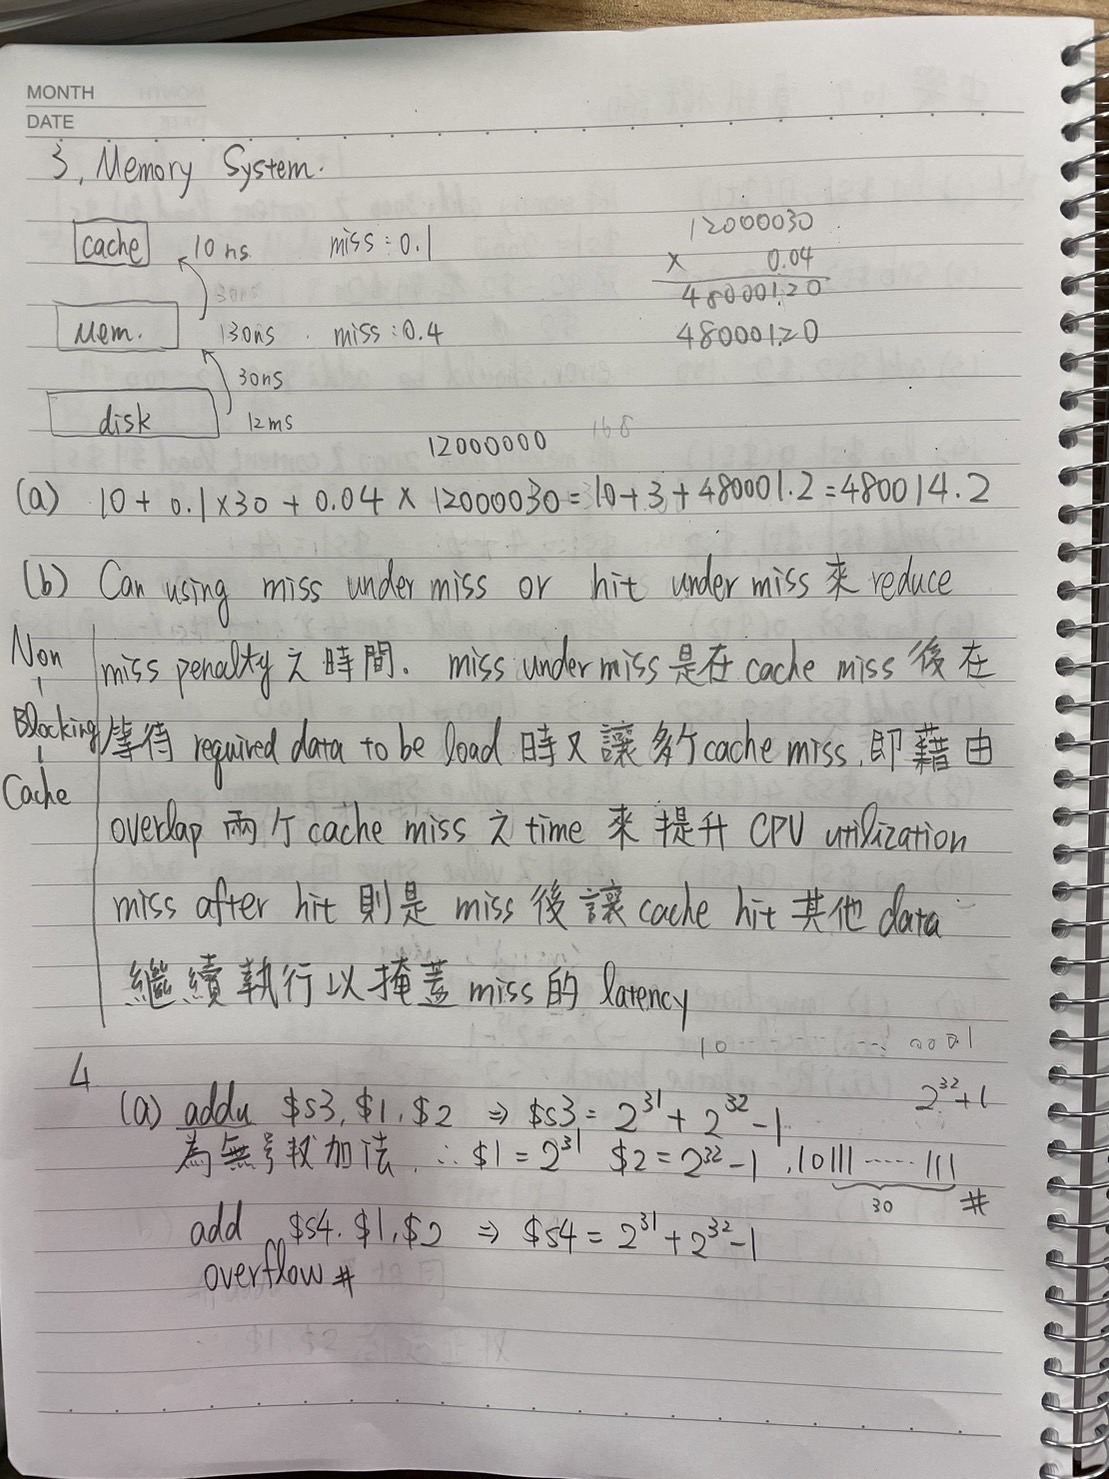 MONTH
DATE
3, Memory System.
cache 10ns miss : 0.1
30ns
Mem. 130ns . miss : 0.4
30ns
disk 12ms
12000030
× 0.04
48000120
480001.20
12000000 168
(a) 10 + 0.1×30 + 0.04 × 12000030 = 10+3+480001.2 = 480014.2
(b) Can using miss under miss or hit under miss 來 reduce
Non-Blocking-Cache
miss penalty 之時間. miss under miss 是在 cache miss 後在
等待 required data to be load 時又讓多个 cache miss, 即藉由
overlap 兩个 cache miss 之 time 來提升 CPU utilization
miss after hit 則是 miss 後讓 cache hit 其他 data
繼續執行以掩蓋 miss 的 latency
10 ...... 0001
2³²+1
4
(a) addu $s3, $1, $2 ⇒ $s3 = 2³¹ + 2³² -1
為無号数加法. ∴ $1 = 2³¹ $2 = 2³² -1 , 10111 ······ 111 #
30
add $s4. $1, $2 ⇒ $s4 = 2³¹+2³²-1
overflow #